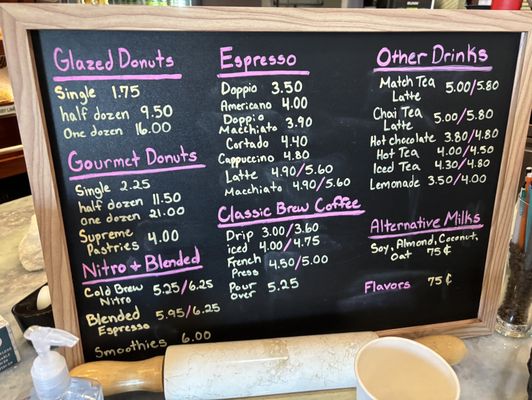 Glazed Donuts
Single 1.75
half dozen 9.50
One dozen 16.00
Gourmet Donuts
Single 2.25
half dozen 11.50
one dozen 21.00
Supreme
Pastries 4.00
Nitro + Blended
Cold Brew
Nitro 5.25/6.25
Blended
Espresso 5.95/6.25
Smoothies 6.00
Espresso
Doppio 3.50
Americano 4.00
Doppio
Macchiato 3.90
Cortado 4.40
Cappuccino 4.80
Latte 4.90/5.60
Macchiato 4.90/5.60
Classic Brew Coffee
Drip 3.00/3.60
iced 4.00/4.75
French
Press 4.50/5.00
Pour
Over 5.25
Other Drinks
Match Tea
Latte 5.00/5.80
Chai Tea
Latte 5.00/5.80
Hot chocolate 3.80/4.80
Hot Tea 4.00/4.50
Iced Tea 4.30/4.80
Lemonade 3.50/4.00
Alternative Milks
Soy, Almond, Coconut,
Oat 75¢
Flavors 75¢